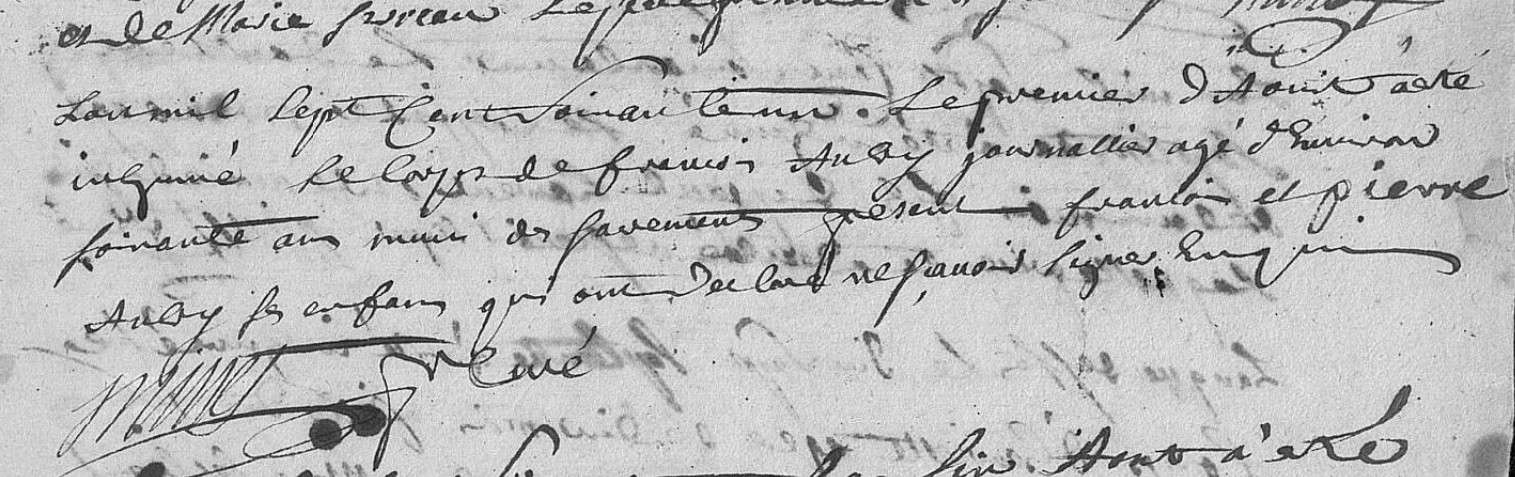 et de Marie
Lan mil sept Cent soixante un. Le premier d'Aoust a eté
inhumé le Corps de francois Aubry journallier agé d'Environ
soixante ans muni des sacrements present francois et pierre
Aubry ses enfans qui ont declaré ne sçavoir signer Enquis
Curé
Aout a eté